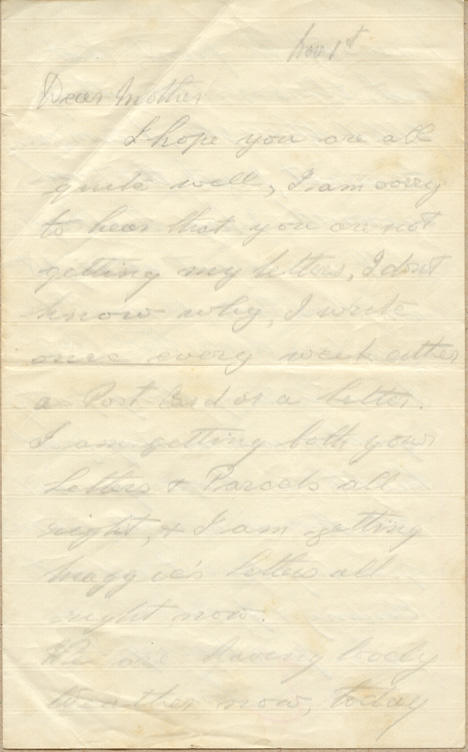 Nov 1st
Dear Mother
I hope you are all
quite well, I am sorry
to hear that you are not
getting my letters, I dont
know why, I write
once every week either
a Post Card or a letter.
I am getting both your
Letters & Parcels all
right, & I am getting
Maggie's letters all
right now.
We are having
weather now, today